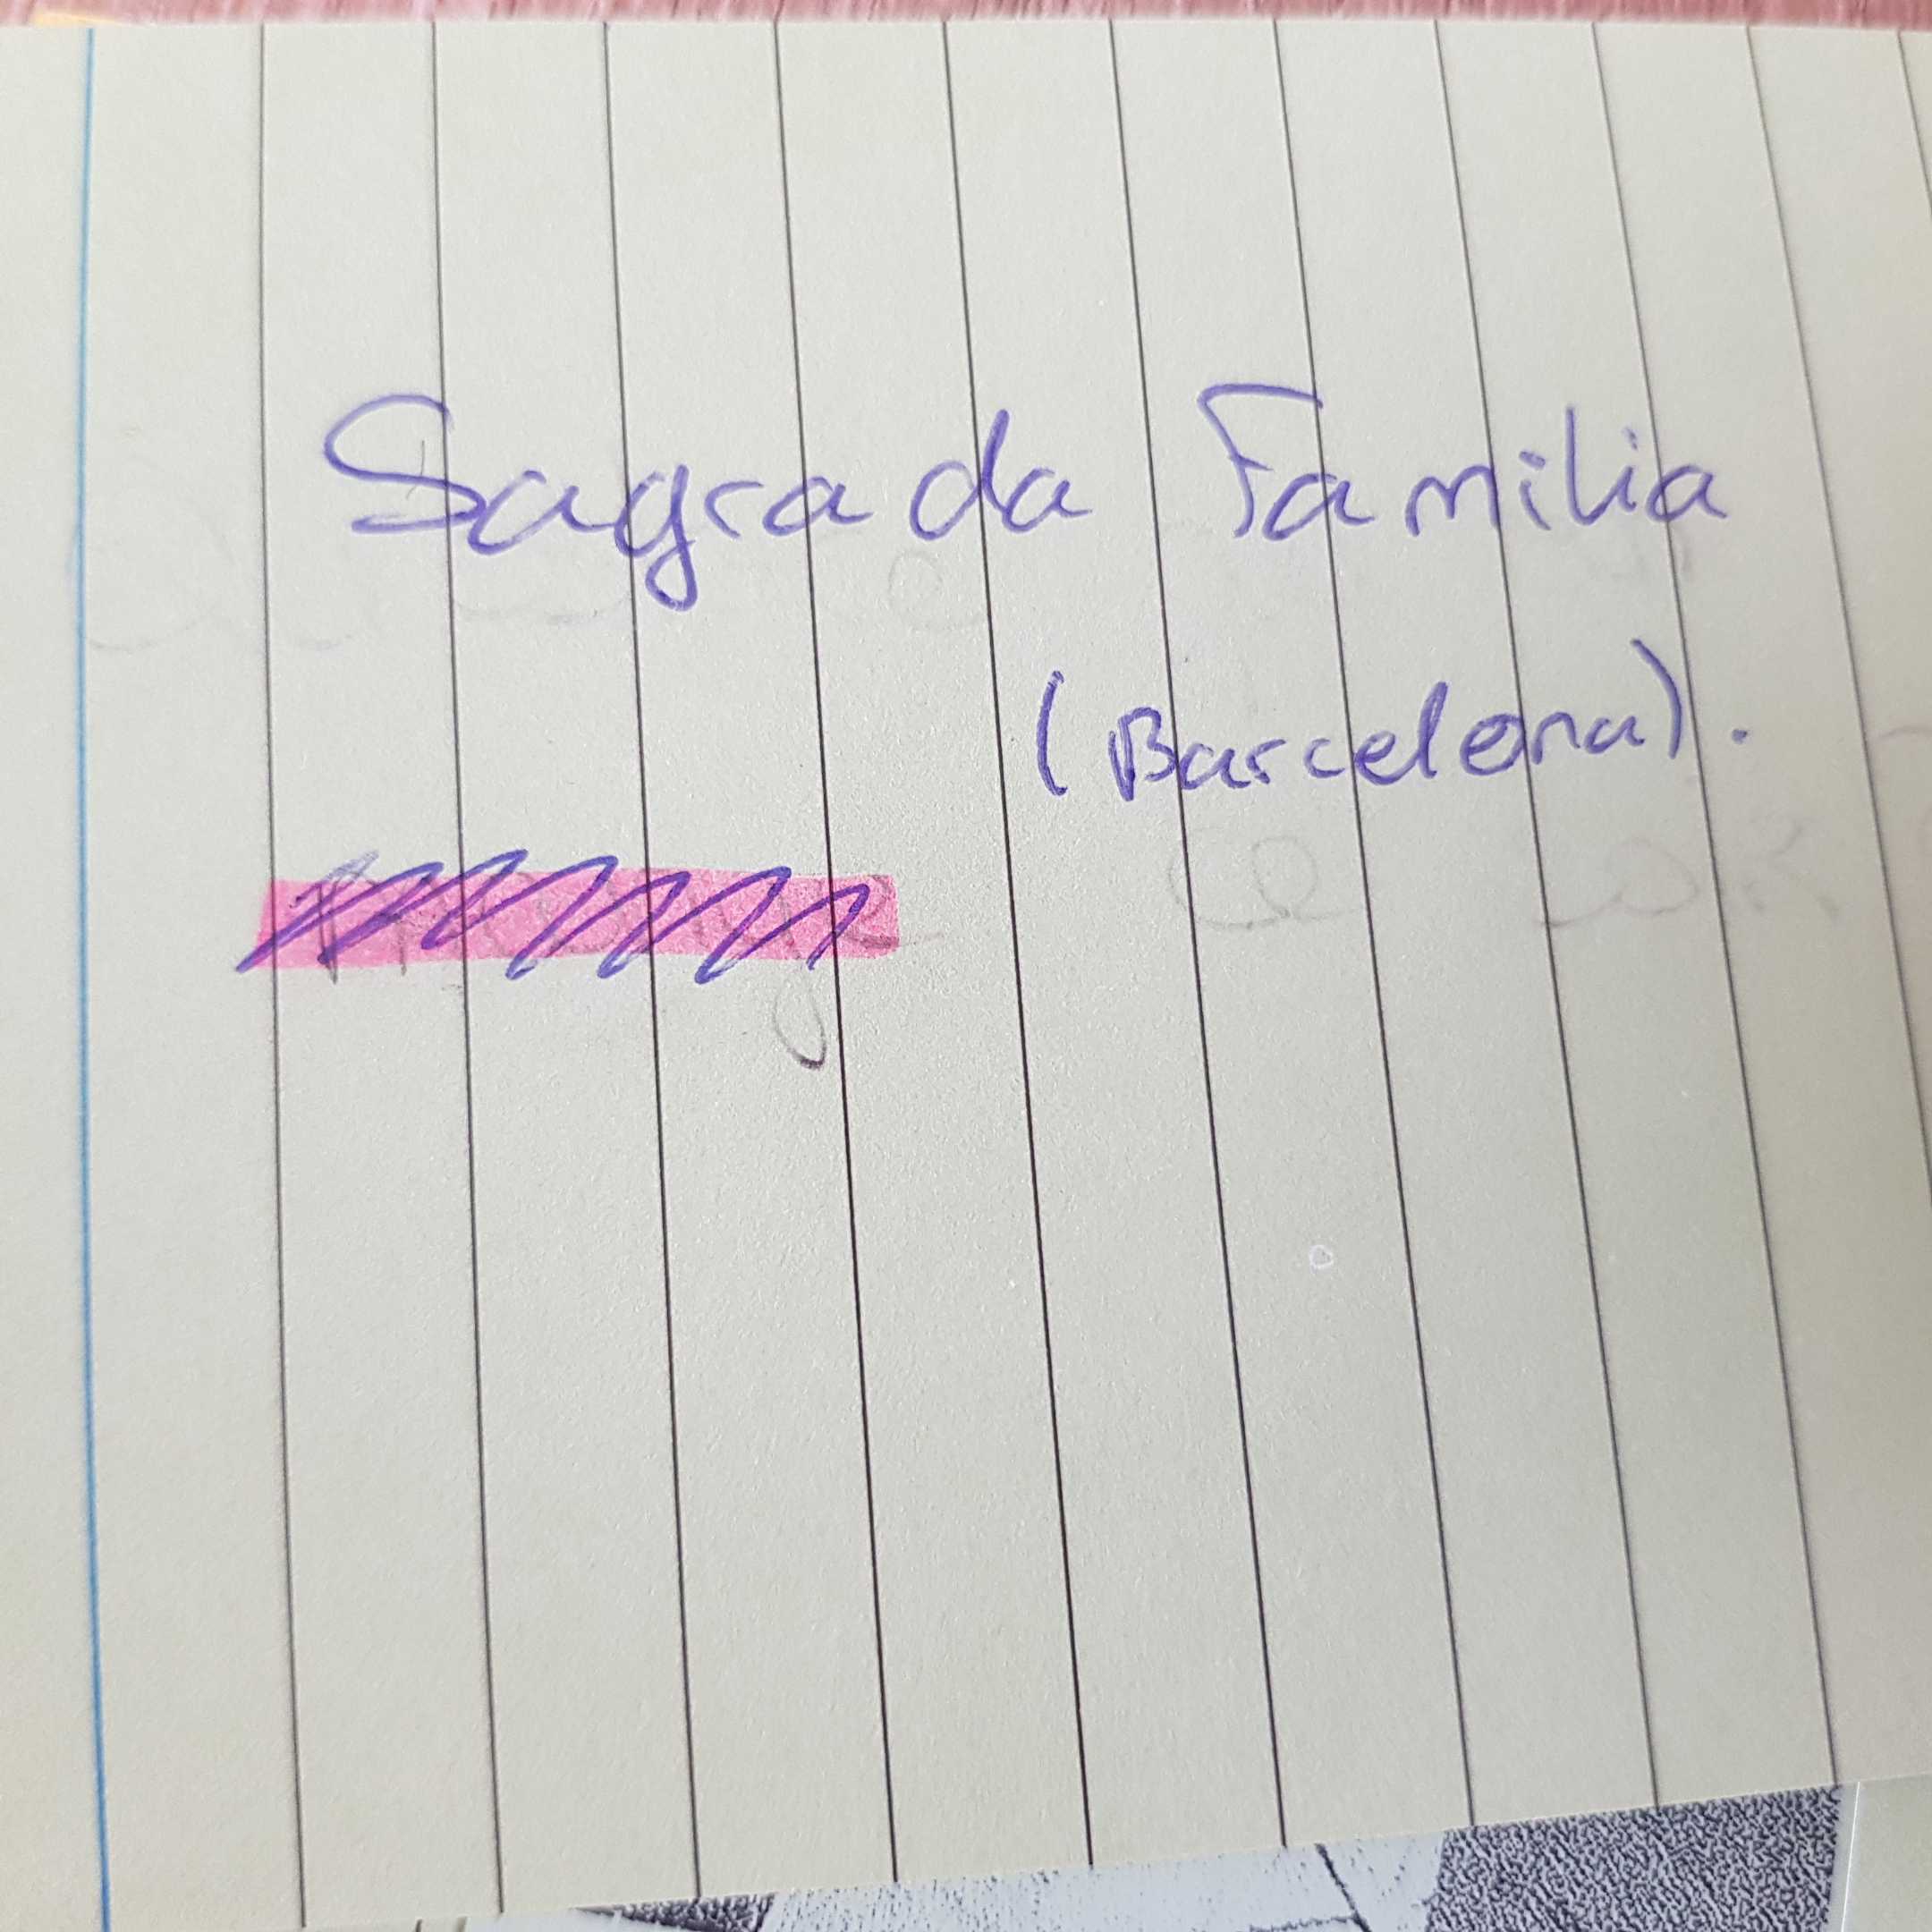 Sagrada Familia
(Barcelona).